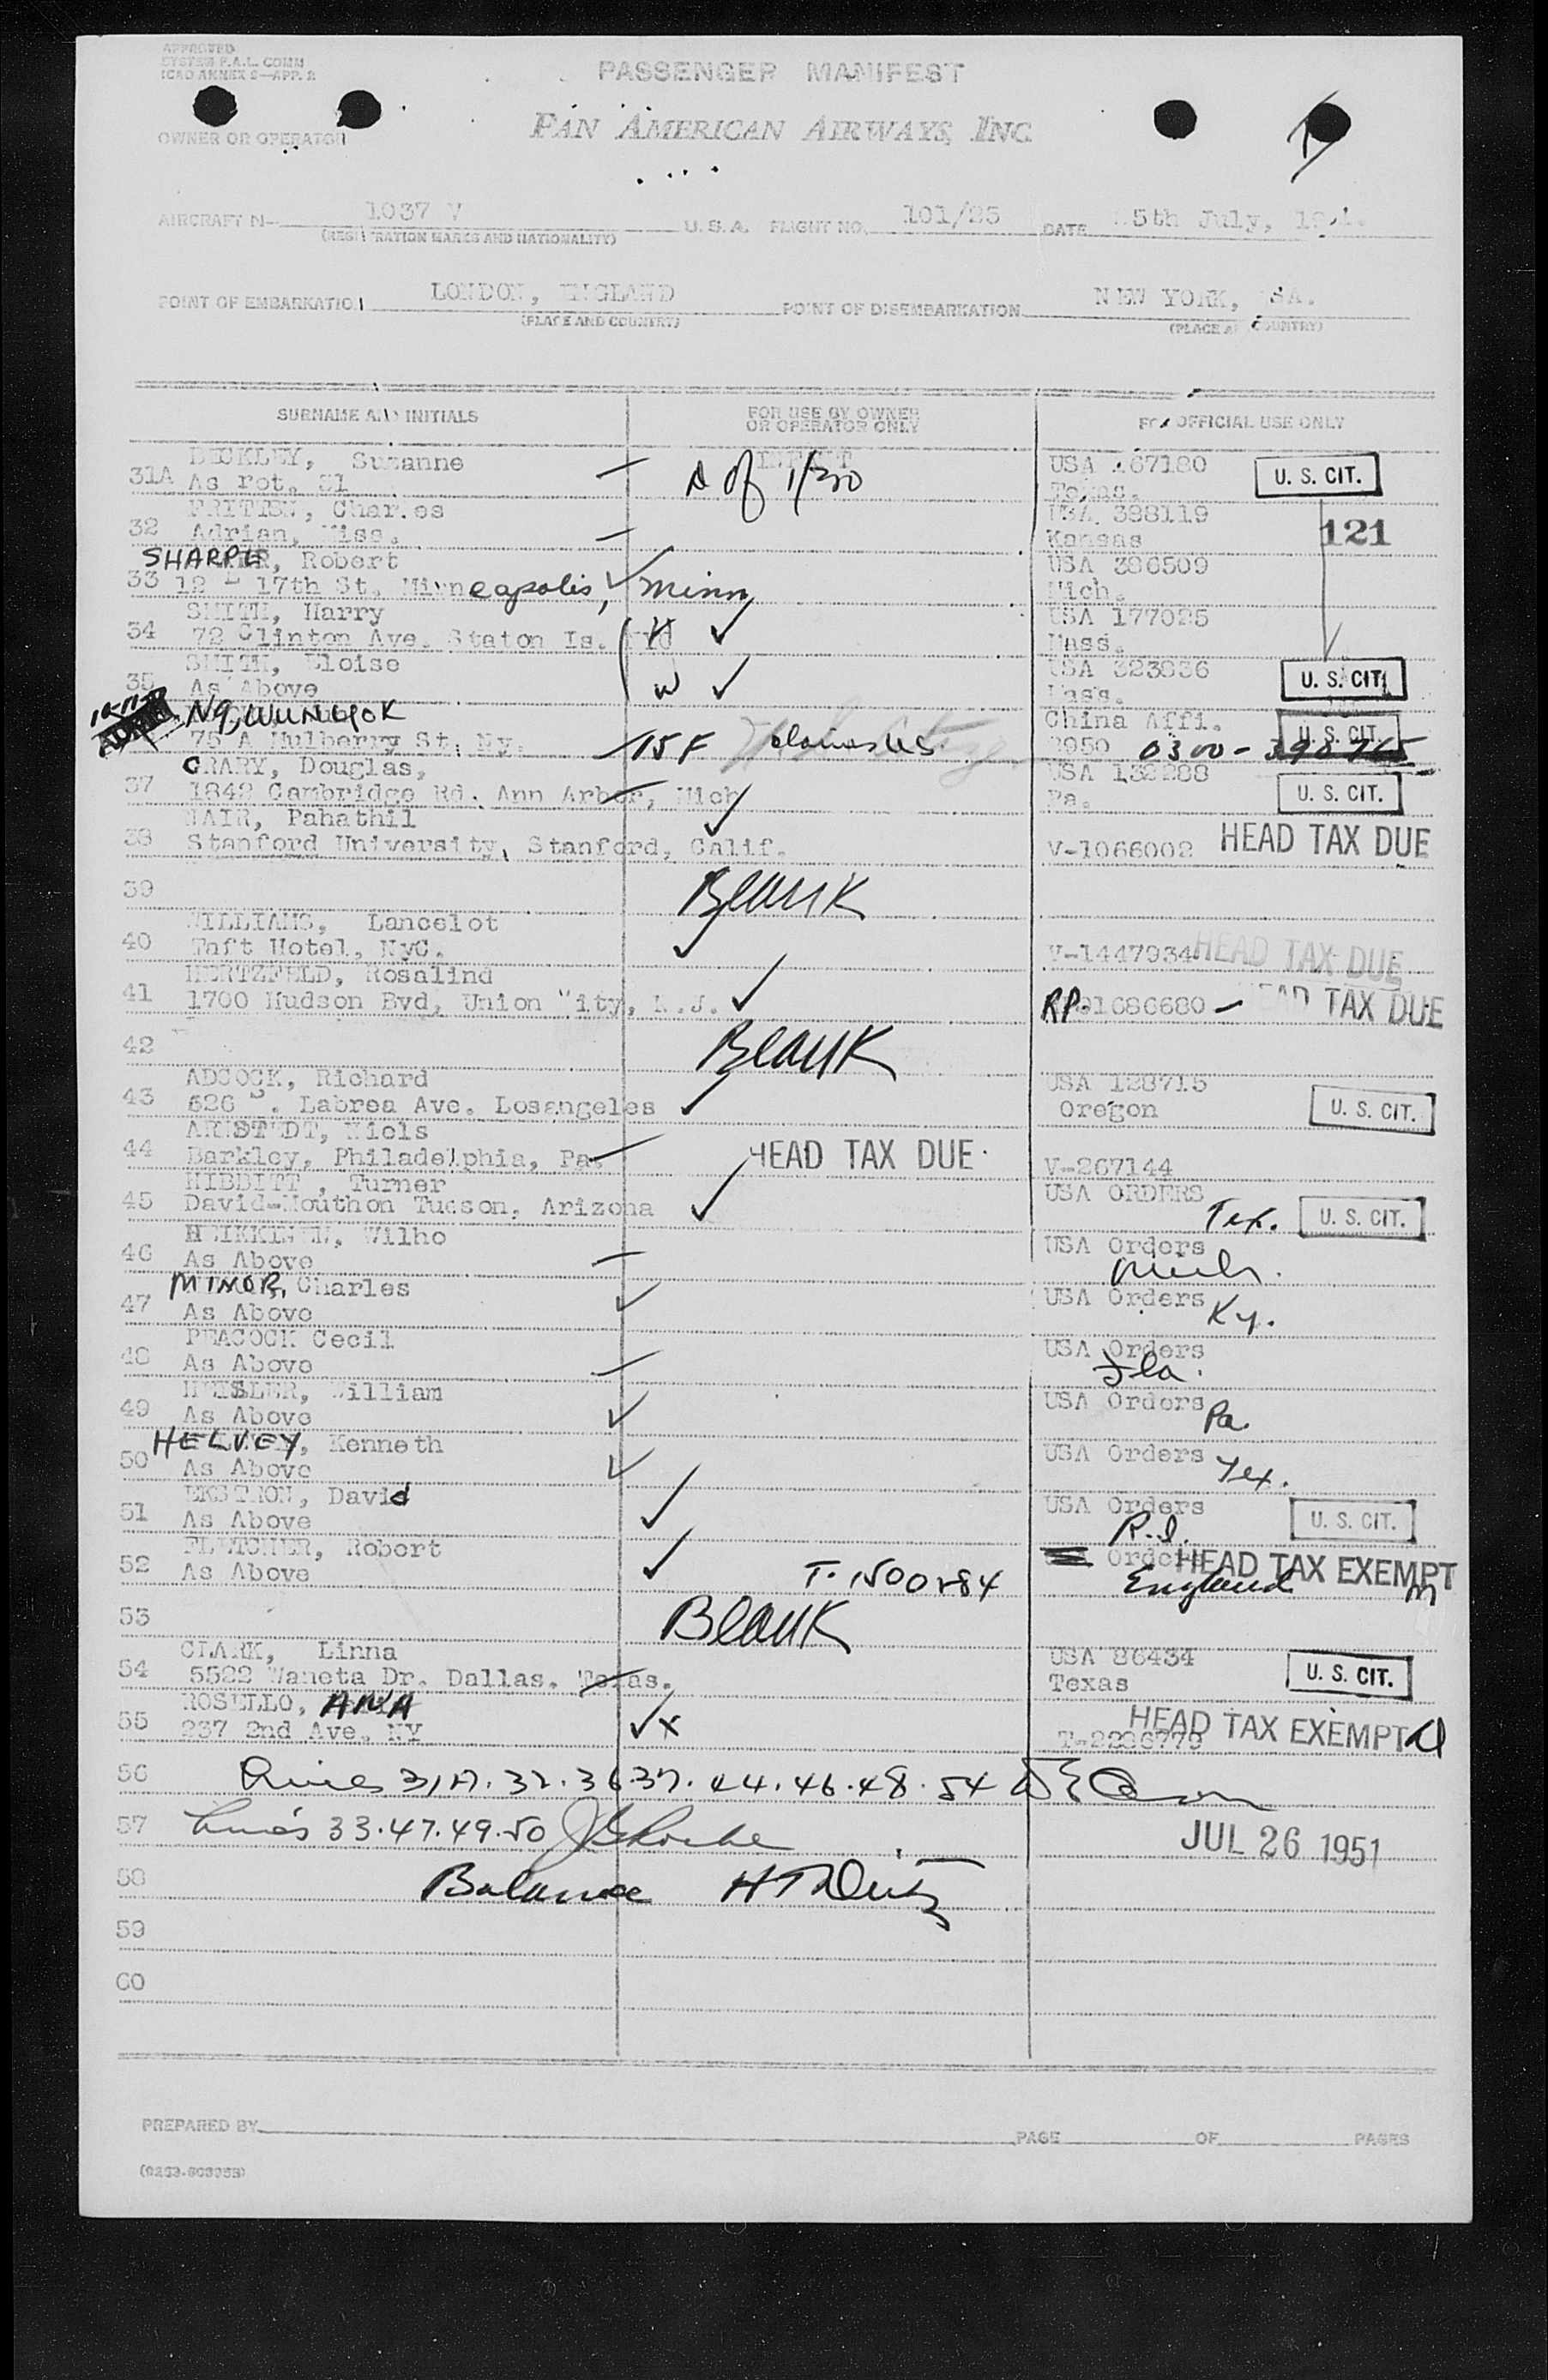 APPROVED
SYSTEM F.A.L. COMM
ICAO ANNEX 9—APP. 2
PASSENGER MANIFEST
OWNER OR OPERATOR
PAN AMERICAN AIRWAYS, INC
AIRCRAFT N— 1037 V U.S.A. FLIGHT NO. 101/25 DATE 5th July, 1951.
(REGISTRATION MARKS AND NATIONALITY)
POINT OF EMBARKATION LONDON, ENGLAND POINT OF DISEMBARKATION NEW YORK, USA.
(PLACE AND COUNTRY) (PLACE AND COUNTRY)
SURNAME AND INITIALS FOR USE BY OWNER OR OPERATOR ONLY FOR OFFICIAL USE ONLY
Suzanne INFANT USA 67180 U. S. CIT.
31A As rot. 31 Texas.
Charles USA 388119 121
32 Adrian, Miss. Kansas
SHARPE, Robert USA 386509
33 12 - 17th St. Minneapolis, Minn Mich.
SMITH, Harry USA 177025
34 72 Clinton Ave. Staton Is. NYC Mass.
SMITH, Eloise USA 323836
35 As Above W Mass. U. S. CIT.
China Affi. U. S. CIT.
75 A Mulberry St, Ny. 15 F 2950 0300-398765
CRARY, Douglas, USA 132288
37 1842 Cambridge Rd. Ann Arbor, Mich Pa. U. S. CIT.
NAIR, Pahathil
38 Stanford University, Stanford, Calif. V-1066002 HEAD TAX DUE
39 Blank
WILLIAMS, Lancelot
40 Taft Hotel, NyC. V-1447934 HEAD TAX DUE
HERTZFELD, Rosalind
41 1700 Hudson Bvd, Union City, N.J. RP. 1686680 HEAD TAX DUE
42 Blank
ADCOCK, Richard USA 128715
43 626 S. Labrea Ave. Losangeles Oregon U. S. CIT.
Niels
44 Barkley, Philadelphia, Pa. HEAD TAX DUE V-267144
NIBBITT, Turner USA ORDERS
45 David-Mouthon Tucson, Arizona Tex. U. S. CIT.
HEIKKINEN, Wilho USA Orders
46 As Above Mich.
MINOR, Charles USA Orders
47 As Above Ky.
PEACOCK Cecil USA Orders
48 As Above Fla.
William USA Orders
49 As Above Pa
HELVEY, Kenneth USA Orders
50 As Above Tex.
EKSTRON, David USA Orders
51 As Above R.I. U. S. CIT.
FLETCHER, Robert Orders HEAD TAX EXEMPT
52 As Above T-1500284 England M
53 Blank
CLARK, Linna USA 86434
54 5522 Waneta Dr. Dallas. Texas. Texas U. S. CIT.
ROSELLO, ANA HEAD TAX EXEMPT
55 237 2nd Ave. NY X T-2236779
56 Lines 31A. 32. 36 37. 44. 46. 48. 54
57 Lines 33. 47. 49. 50 JUL 26 1951
58 Balance
59
60
PREPARED BY PAGE OF PAGES